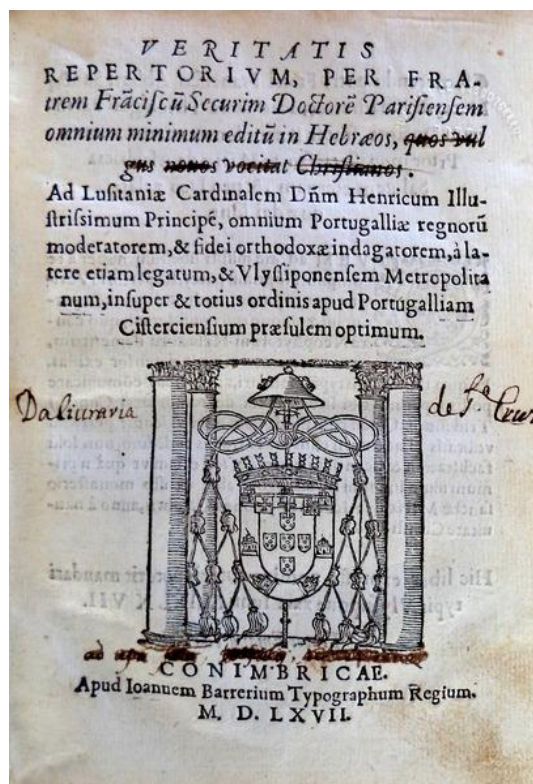 VERITATIS
REPERTORIVM, PER FRA-
trem Frãciscũ Securim Doctorẽ Parisiensem
omnium minimum editũ in Hebræos, quos vul
gus nouos vocitat Christianos.
Ad Lusitaniæ Cardinalem Dñm Henricum Illu-
strissimum Principẽ, omnium Portugalliæ regnorũ
moderatorem, & fidei orthodoxæ indagatorem, à la-
tere etiam legatum, & Vlyssiponensem Metropolita
num, insuper & totius ordinis apud Portugalliam
Cisterciensium præsulem optimum.
Da liuraria
de S.ta Cruz
CONIMBRICAE.
Apud Ioannem Barrerium Typographum Regium.
M. D. LXVII.